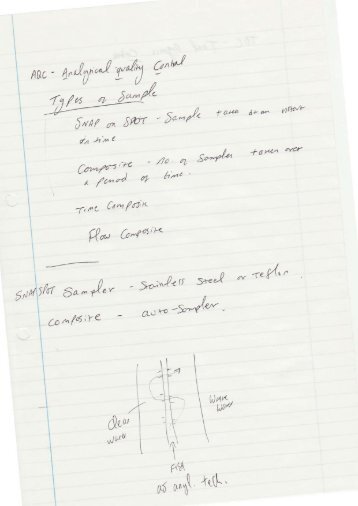 AQC - Analytical Quality Control
Types of Sample
SNAP or SPOT - Sample taken at an instant
in time
Composite - no. of Samples taken over
a period of time.
Time Composite
Flow Composite
SNAP/SPOT Sampler - Stainless Steel or Teflon.
Composite - auto-Sampler.
Clear
Water
Waste
Water
FISH
as anyl. tech.